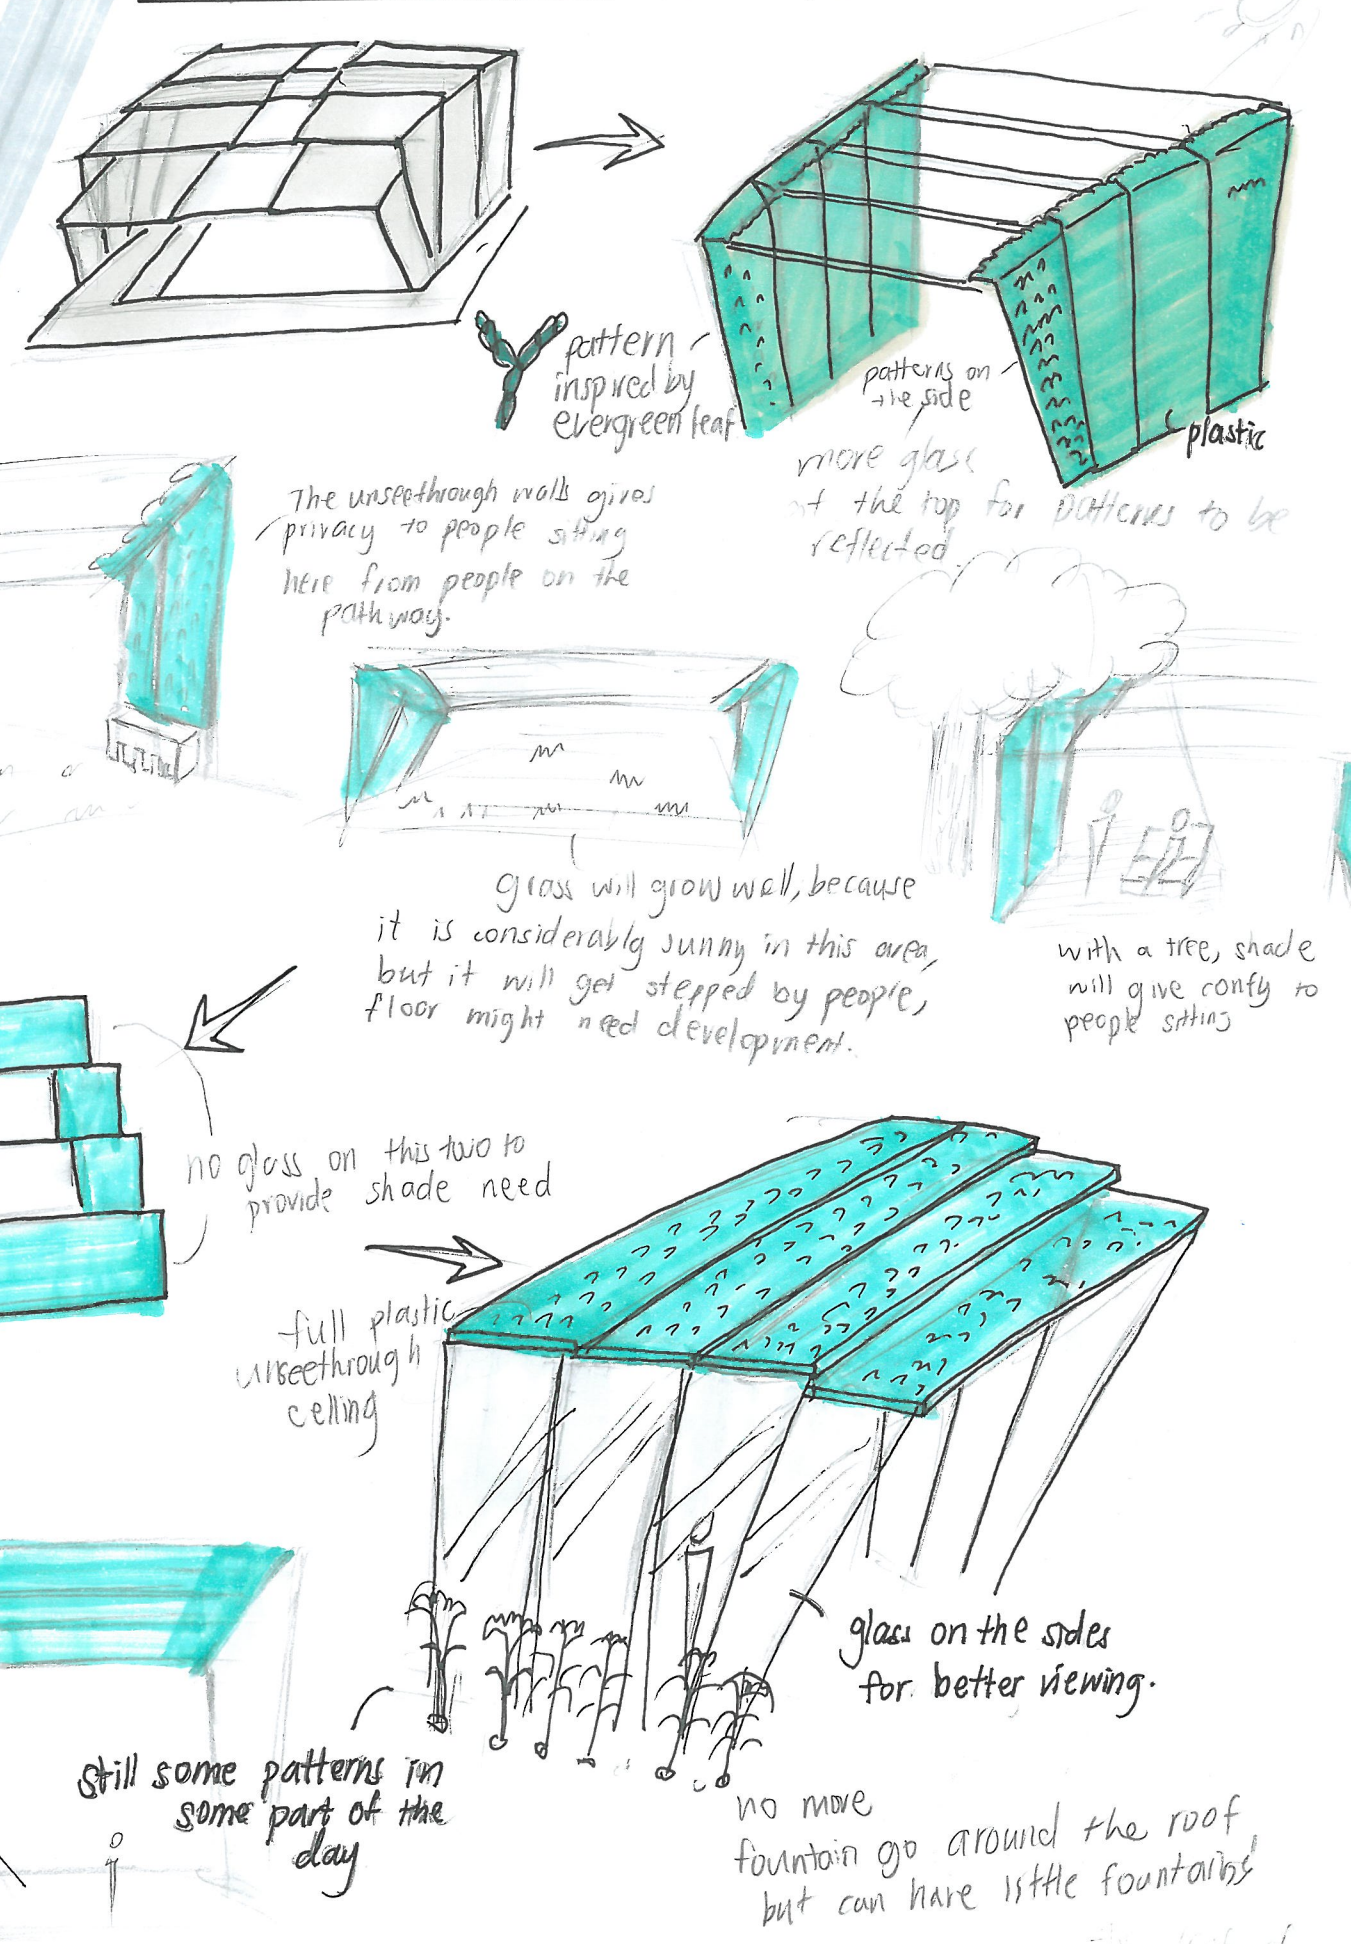 pattern
inspired by
evergreen leaf
patterns on
the side
plastic
more glass
at the top for patterns to be
reflected.
The unseethrough walls gives
privacy to people sitting
here from people on the
pathway.
grass will grow well, because
it is considerably sunny in this area,
but it will get stepped by people,
floor might need development.
with a tree, shade
will give confy to
people sitting
no glass on this two to
provide shade need
full plastic
unseethrough
celling
glass on the sides
for better viewing.
still some patterns in
some part of the
day
no more
fountain go around the roof,
but can have little fountains